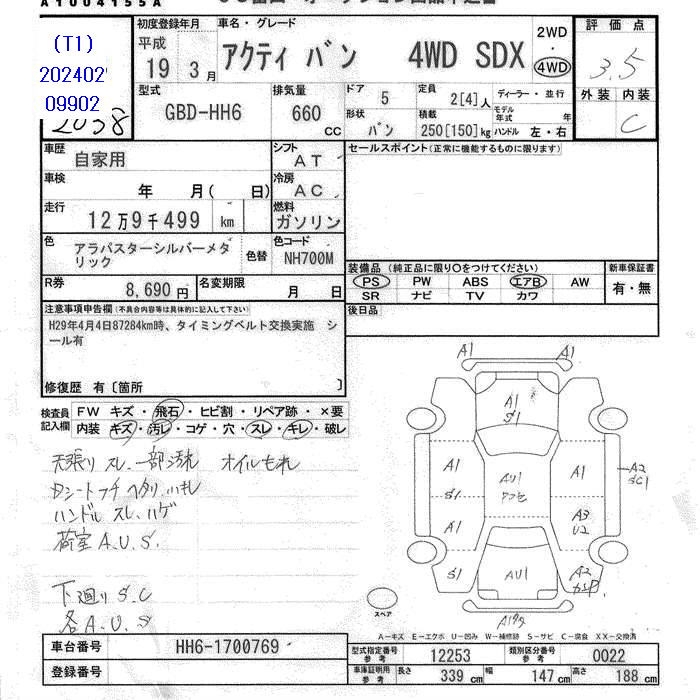 A1004155A
(T1)
202402
09902
2058
初度登録年月
平成
19 3月
車名・グレード
アクティ バン 4WD SDX
2WD
・
4WD
評価点
3.5
外装 内装
C
型式
GBD-HH6
排気量
660
cc
ドア 5
形状 バン
定員 2[4]人
積載 250[150]kg
ディーラー・並行
モデル年式 年
ハンドル 左・右
車歴 自家用
シフト AT
セールスポイント(正常に機能するものに限ります)
車検 年 月( 日)
冷房 AC
走行 12万9千499 km
燃料 ガソリン
色 アラバスターシルバーメタリック
色替
色コード NH700M
R券 8,690円
名変期限 月 日
装備品(純正品に限り○をつけてください)
PS PW ABS エアB AW
SR ナビ TV カワ
新車保証書
有・無
後日品
注意事項申告欄(不具合内容等は具体的に記入して下さい)
H29年4月4日87284km時、タイミングベルト交換実施 シール有
修復歴 有〔箇所 〕
検査員記入欄
FW キズ・飛石・ヒビ割・リペア跡・×要
内装 キズ・汚レ・コゲ・穴・スレ・キレ・破レ
天張り スレ.一部汚れ オイルもれ
ハンドル スレ.ハゲ
荷室 A.U.S.
下廻り S.C
各A.U.S
A1 A1
A1
S1
A1 AU1 A1 A2
S1 SC1
A1 A3
U2
S1 AU1 A2
スペア
A-キズ E-エクボ U-凹み W-補修跡 S-サビ C-腐食 XX-交換済
車台番号 HH6-1700769
登録番号
型式指定番号 参考 12253
類別区分番号 参考 0022
車庫証明用 参考 長さ 339 cm 幅 147 cm 高さ 188 cm